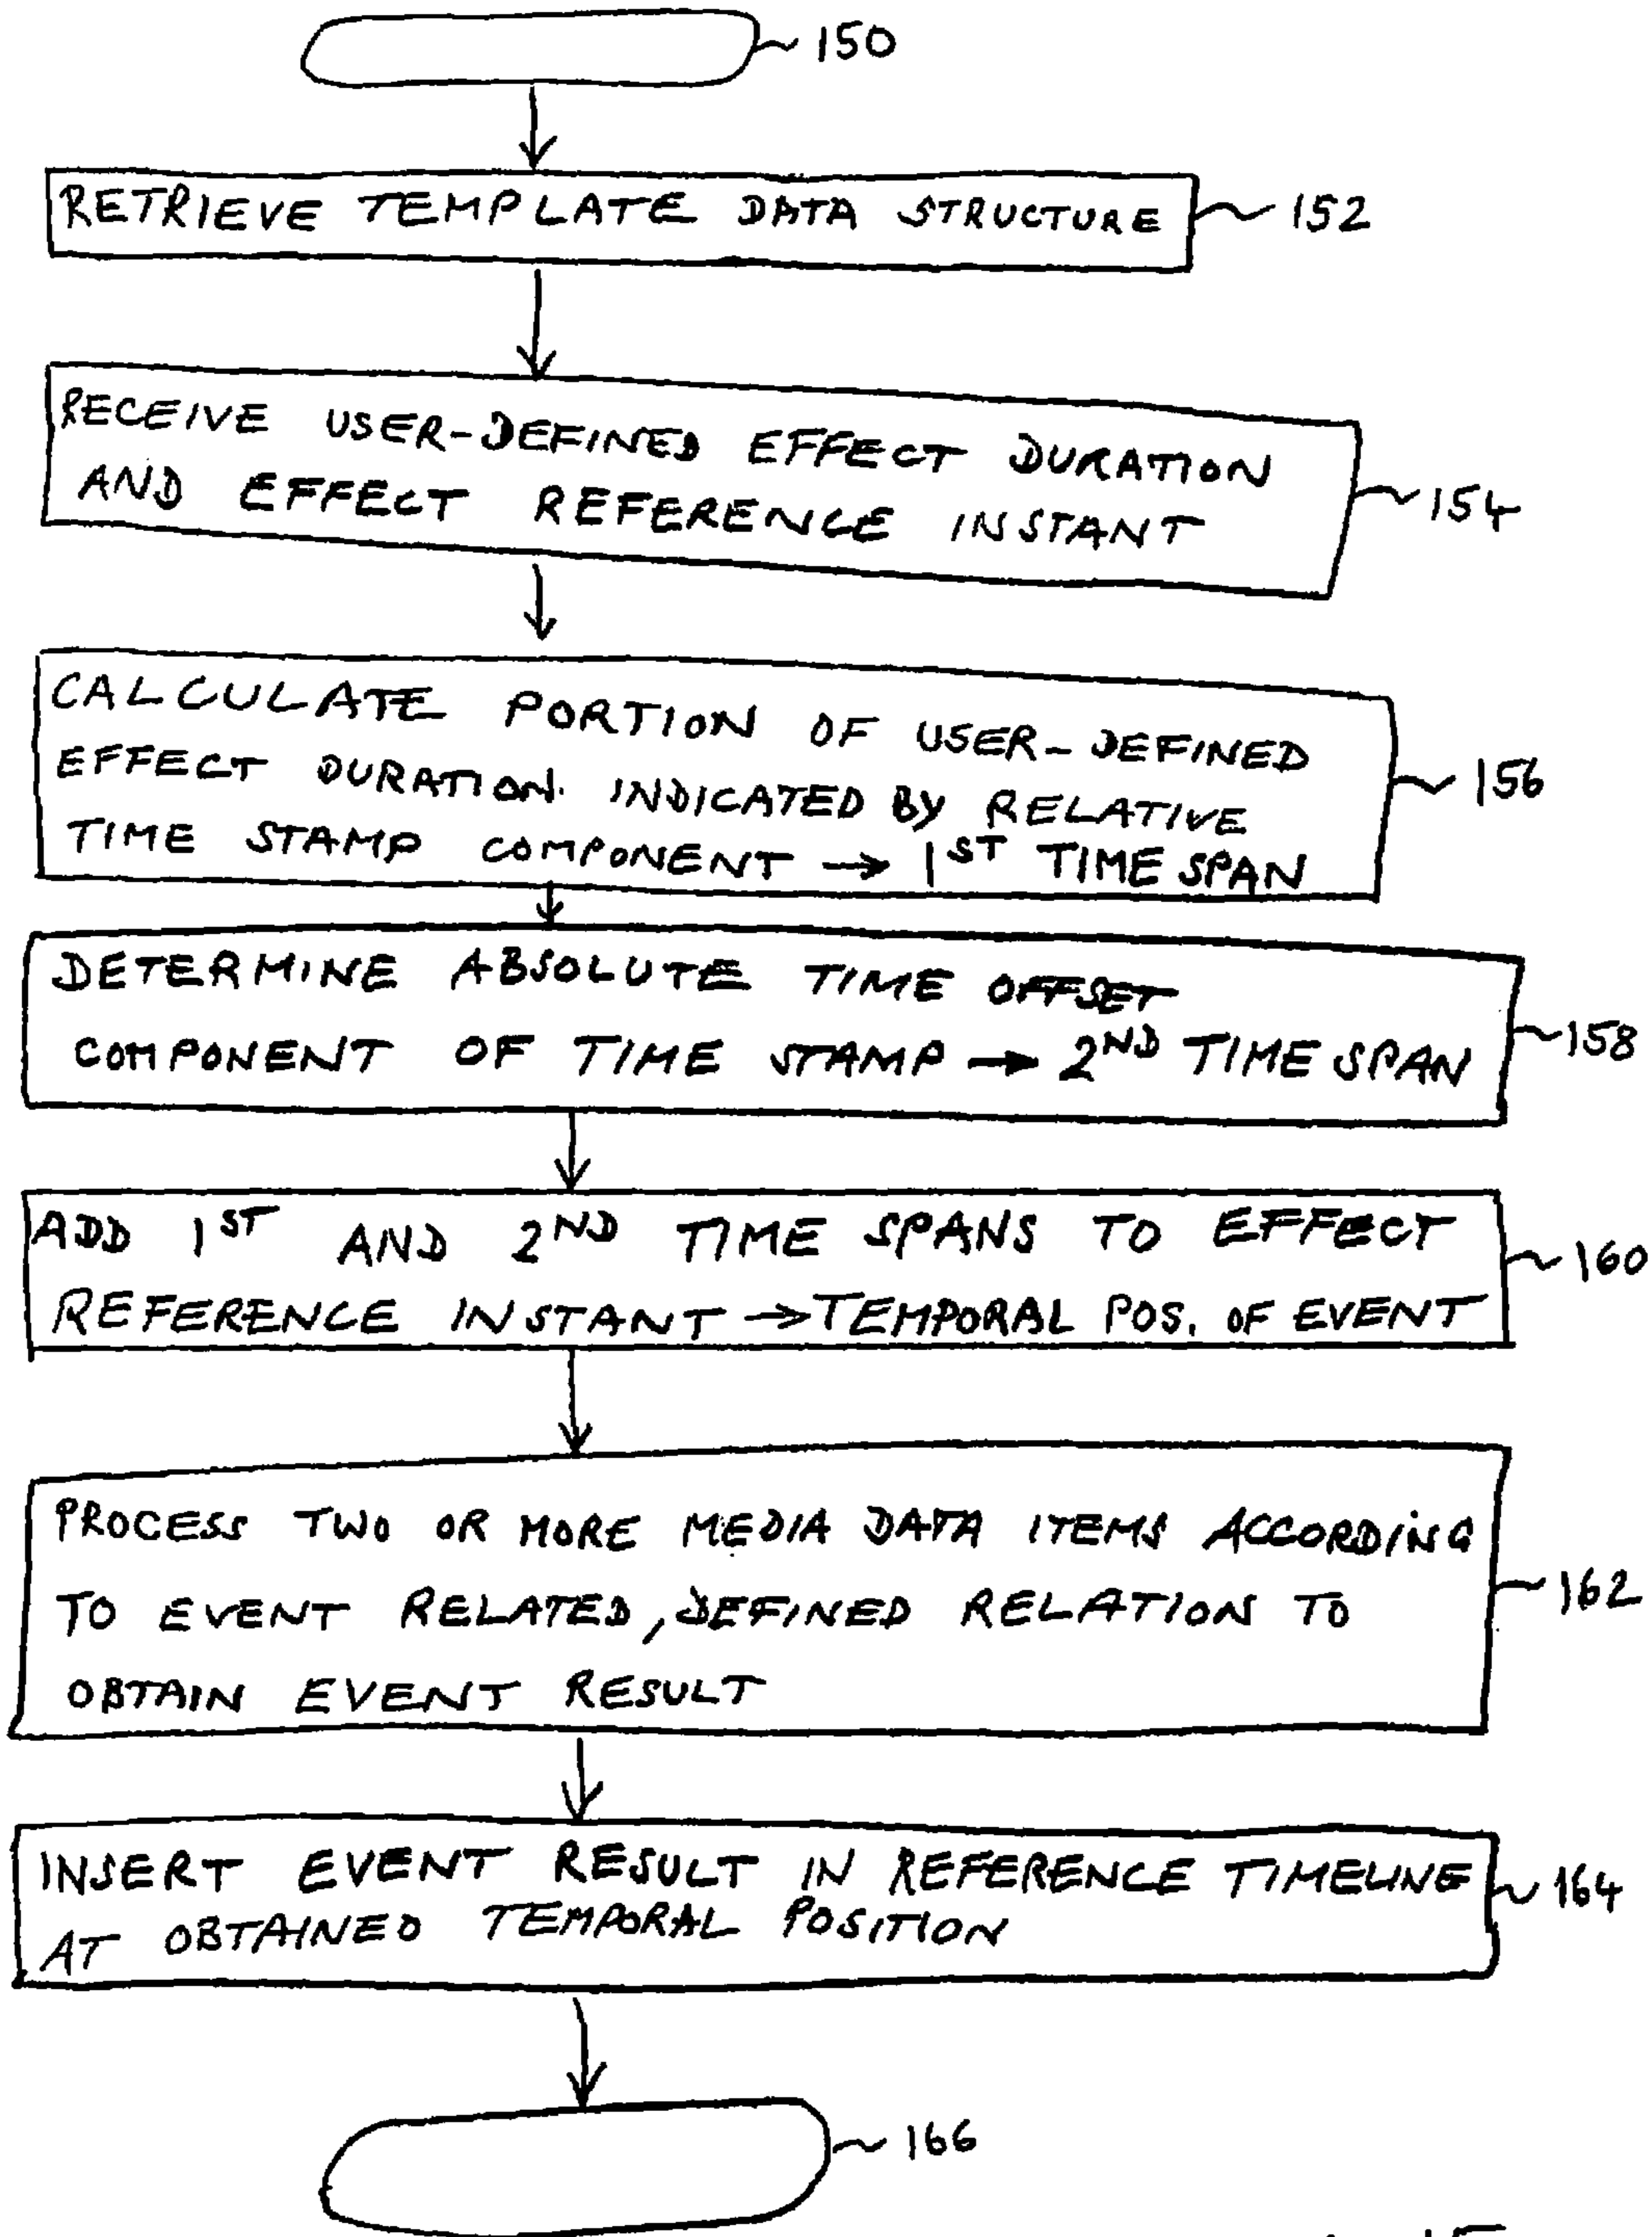 150
RETRIEVE TEMPLATE DATA STRUCTURE
152
RECEIVE USER-DEFINED EFFECT DURATION
AND EFFECT REFERENCE INSTANT
154
CALCULATE PORTION OF USER-DEFINED
EFFECT DURATION. INDICATED BY RELATIVE
TIME STAMP COMPONENT → 1ST TIME SPAN
156
DETERMINE ABSOLUTE TIME OFFSET
COMPONENT OF TIME STAMP → 2ND TIME SPAN
158
ADD 1ST AND 2ND TIME SPANS TO EFFECT
REFERENCE INSTANT → TEMPORAL POS. OF EVENT
160
PROCESS TWO OR MORE MEDIA DATA ITEMS ACCORDING
TO EVENT RELATED, DEFINED RELATION TO
OBTAIN EVENT RESULT
162
INSERT EVENT RESULT IN REFERENCE TIMELINE
AT OBTAINED TEMPORAL POSITION
164
166